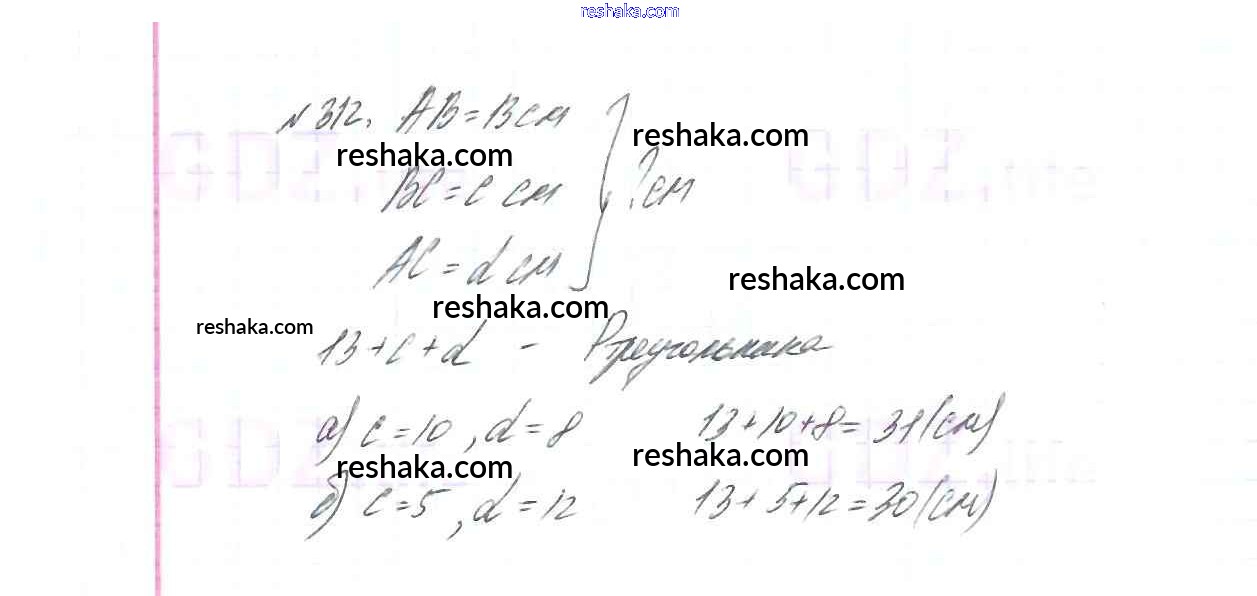 reshaka.com
№ 312. AB = 13 см
reshaka.com
reshaka.com
BC = c см } ? см
AC = d см
reshaka.com
reshaka.com
reshaka.com
13 + c + d - Pтреугольника
а) c = 10, d = 8 13 + 10 + 8 = 31 (см)
reshaka.com
reshaka.com
б) c = 5, d = 12 13 + 5 + 12 = 30 (см)